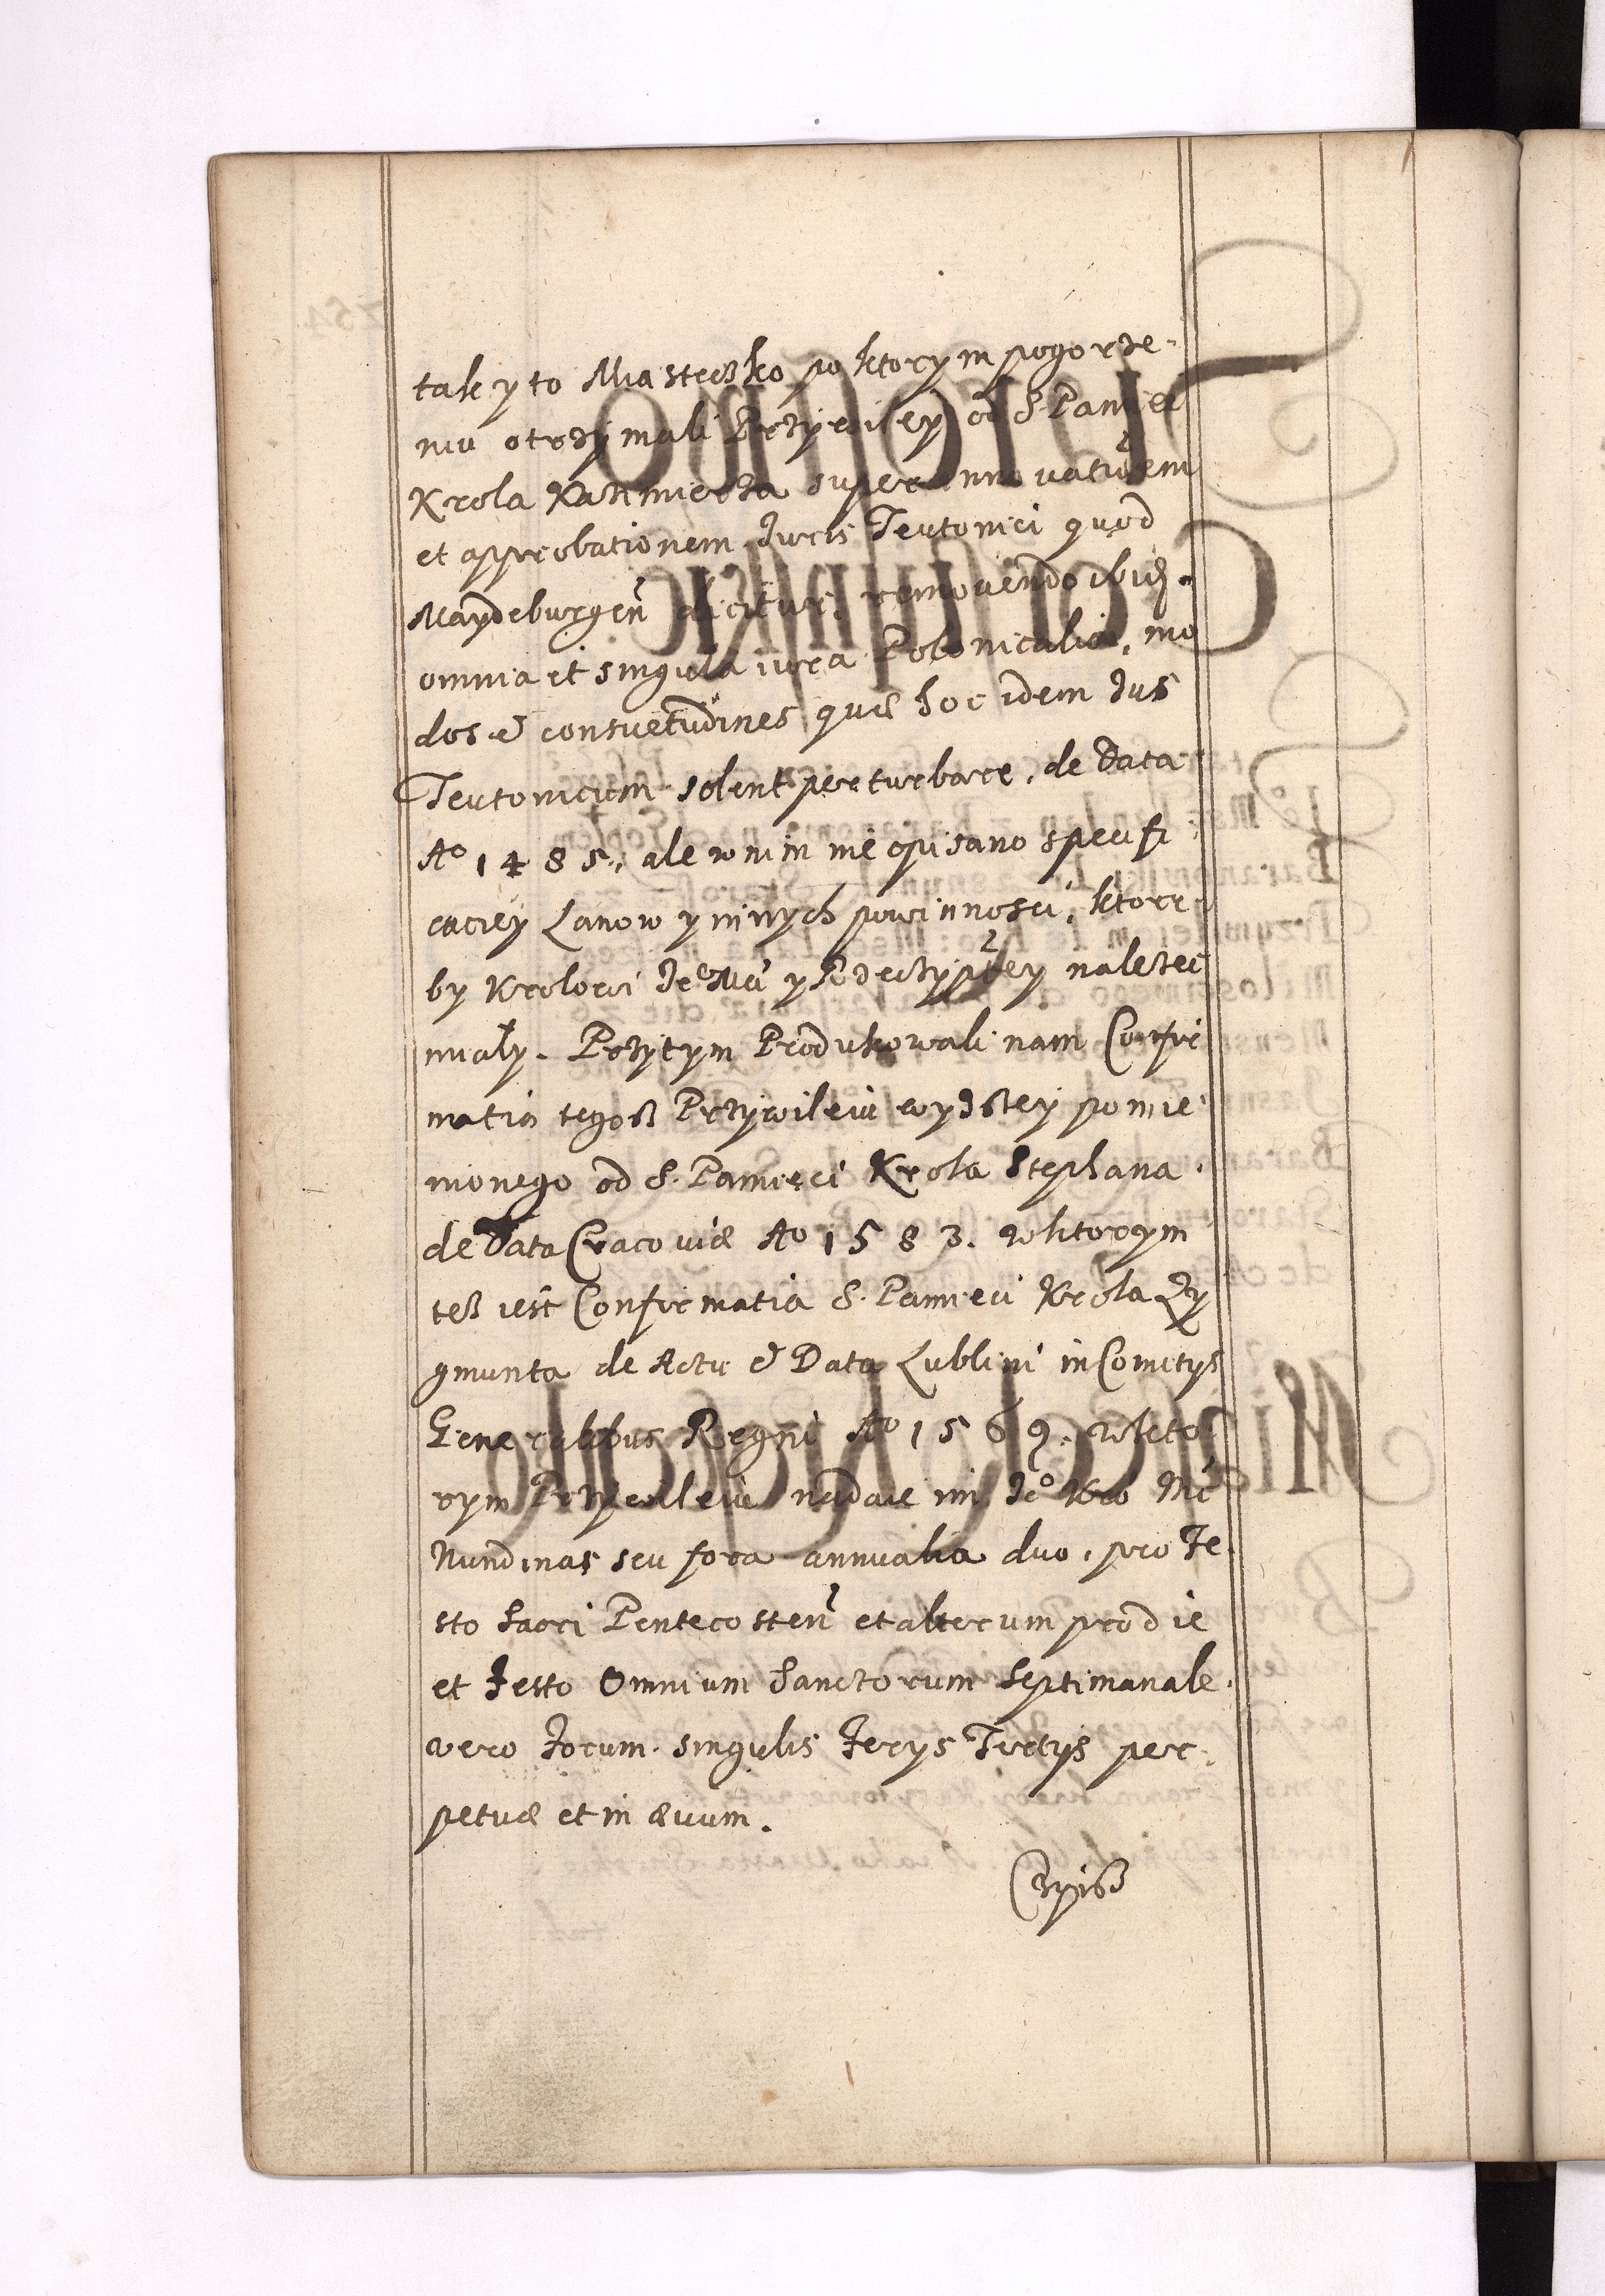 tak y to Miasteczko po ktorym pogorze-
niu otrzymali Przywiley od S. Pamięci
Krola Kazimierza super innovationem
et approbationem Iuris Teutonici quod
Maydeburgen̄ dicitur, removendo ibid.
omnia et singula iura Polonicalia, mo
dos et consuetudines quæ hoc idem Ius
Teutonicum solent perturbare, de Data
Aº 1485., ale w nim nie opisano specifi
catiey Lanow y innych powinnosci, ktore
by Krolowi Je᷑ Mći y naležec
miały. Przytym Produkowali nam Confir
matią tegoß Przywileiu wyżßey pomie
nionego od S. Pamieci Krola Stephana
de Data Cracoviæ Aº 1583. w ktorym
teß iest Confirmatia S. Pamieci Krola Zy
gmunta de Actu et Data Lublini in Comitys
Generalibus Regni Aº 1569. w kto
rym Przywileiu nadaie im Jeº Kro Mć
Nundinas seu fora annualia duo, pro Fe
sto Sacri Pentecosten̄ et alterum pro die
et Festo Omnium Sanctorum Septimanale
vero Forum singulis Ferys Tertys per
petuæ et in ævum.
Czynß